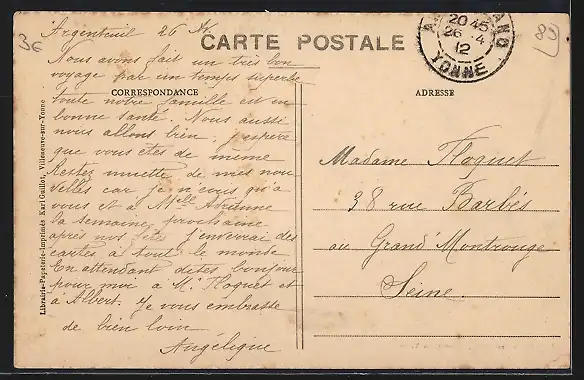 3€
80
Argenteuil 26
CARTE POSTALE
20 45
26 - 4
12
YONNE
Nous avons fait un très bon
voyage par un temps superbe
CORRESPONDANCE
ADRESSE
toute notre famille est en
bonne santé. Nous aussi
nous allons bien. j'espère
que vous êtes de même
Restez muette de mes nou
velles car je n'écris qu'à
vous et à Melle Adrienne
la semaine prochaine
après nos fêtes j'enverrai des
cartes à tout le monde
En attendant dites bonjour
pour moi à Mr Floquet et
à Albert. Je vous embrasse
de bien loin
Angélique
Madame Floquet
38 rue Barbés
au Grand Montrouge
Seine.
Librairie-Papeterie-Imprimés Karl Guillot, Villeneuve-sur-Yonne